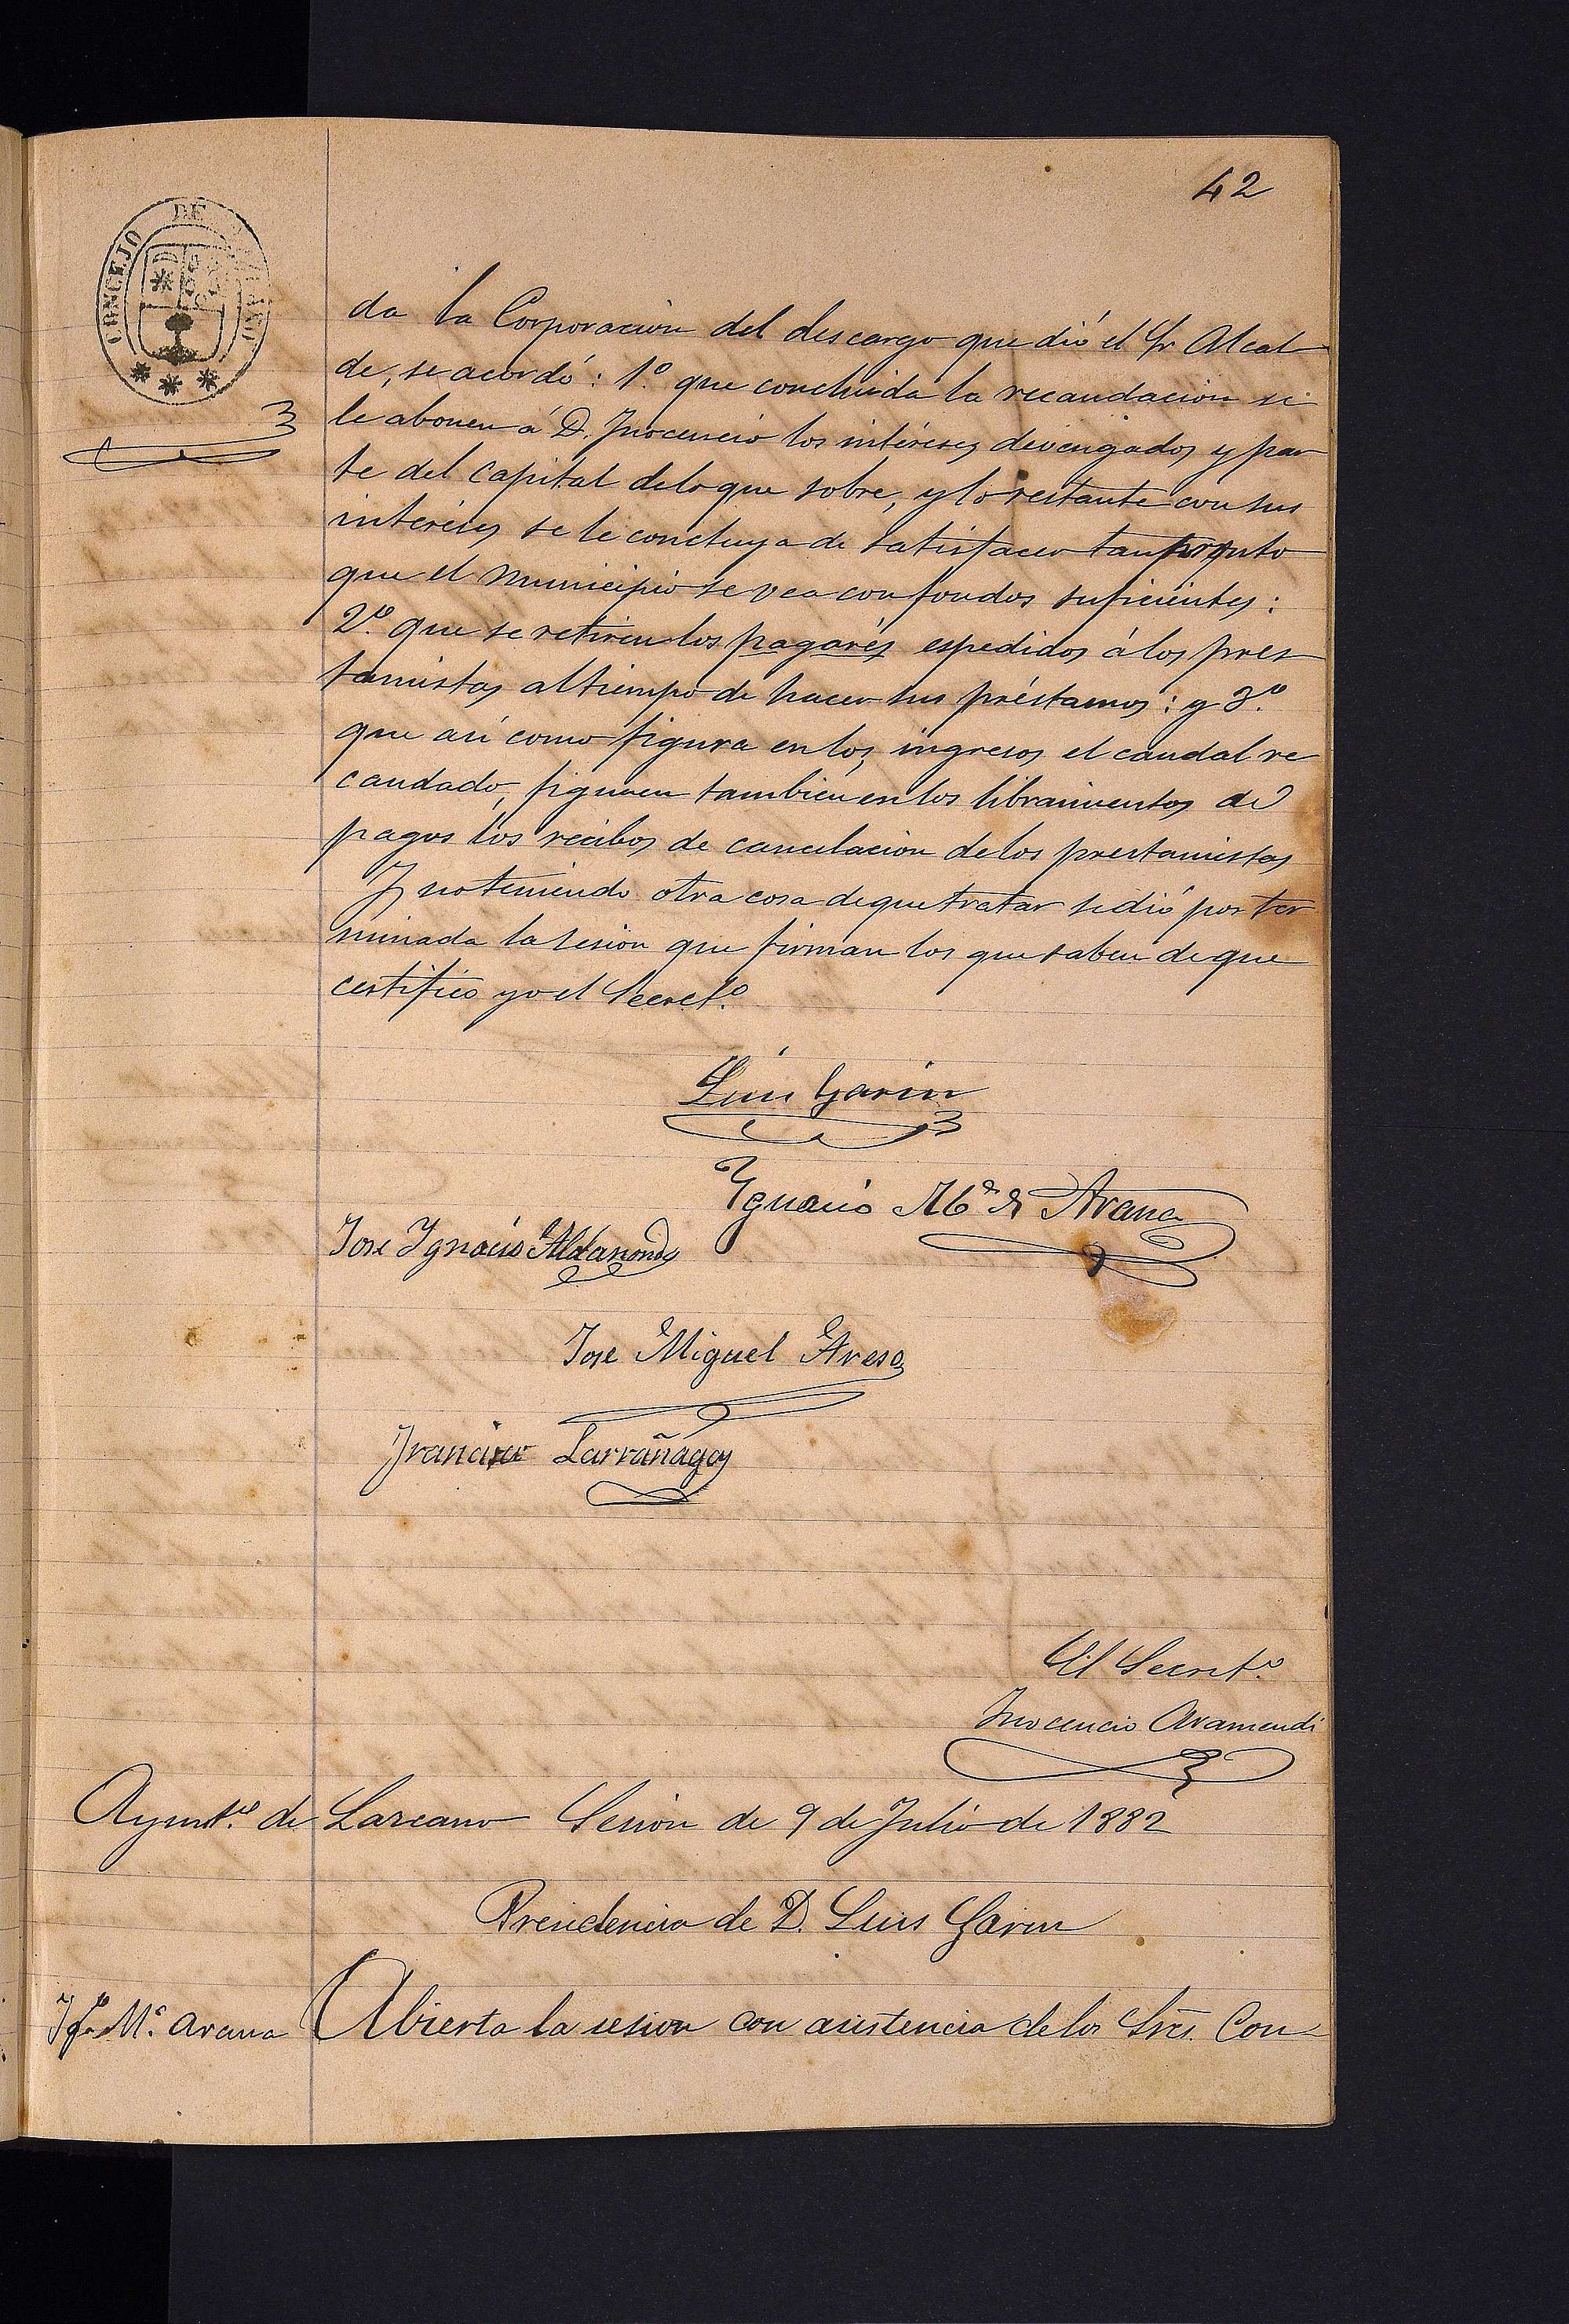 42
CONCEJO DE
da la Corporación del descargo que dió el Sr Alcal
de, se acordó: 1.º que concluida la recaudacion se
le abonen á D. Inocencio los intéreses devengados y par
te del capital de lo que sobre, y lo restante con sus
intéreses se le concluya de satisfacer tan pronto
que el municipio se vea con fondos suficientes:
2.º que se retiren los pagarés espedidos á los pres
tamistas al tiempo de hacer sus préstamos: y 3.º
que asi como figura en los ingresos el caudal re
caudado, figuren también en los libramientos de
pagos los recibos de cancelacion de los prestamistas
Y no teniendo otra cosa de que tratar se dió por ter
minada la sesion que firman los que saben de que
certifico yo el Secret.º
Luis Garin
Ygnacio M.ª de Arana
Jose Ygnacio Aldasoro
Jose Miguel Areso
Francisco Larrañaga
El Secret.º
Inocencio Aramendi
Aymt.º de Lazcano Sesion de 9 de Julio de 1882
Presidencia de D. Luis Garin
Ig.º M.ª Arana
Abierta la sesion con asistencia de los Sres. Con